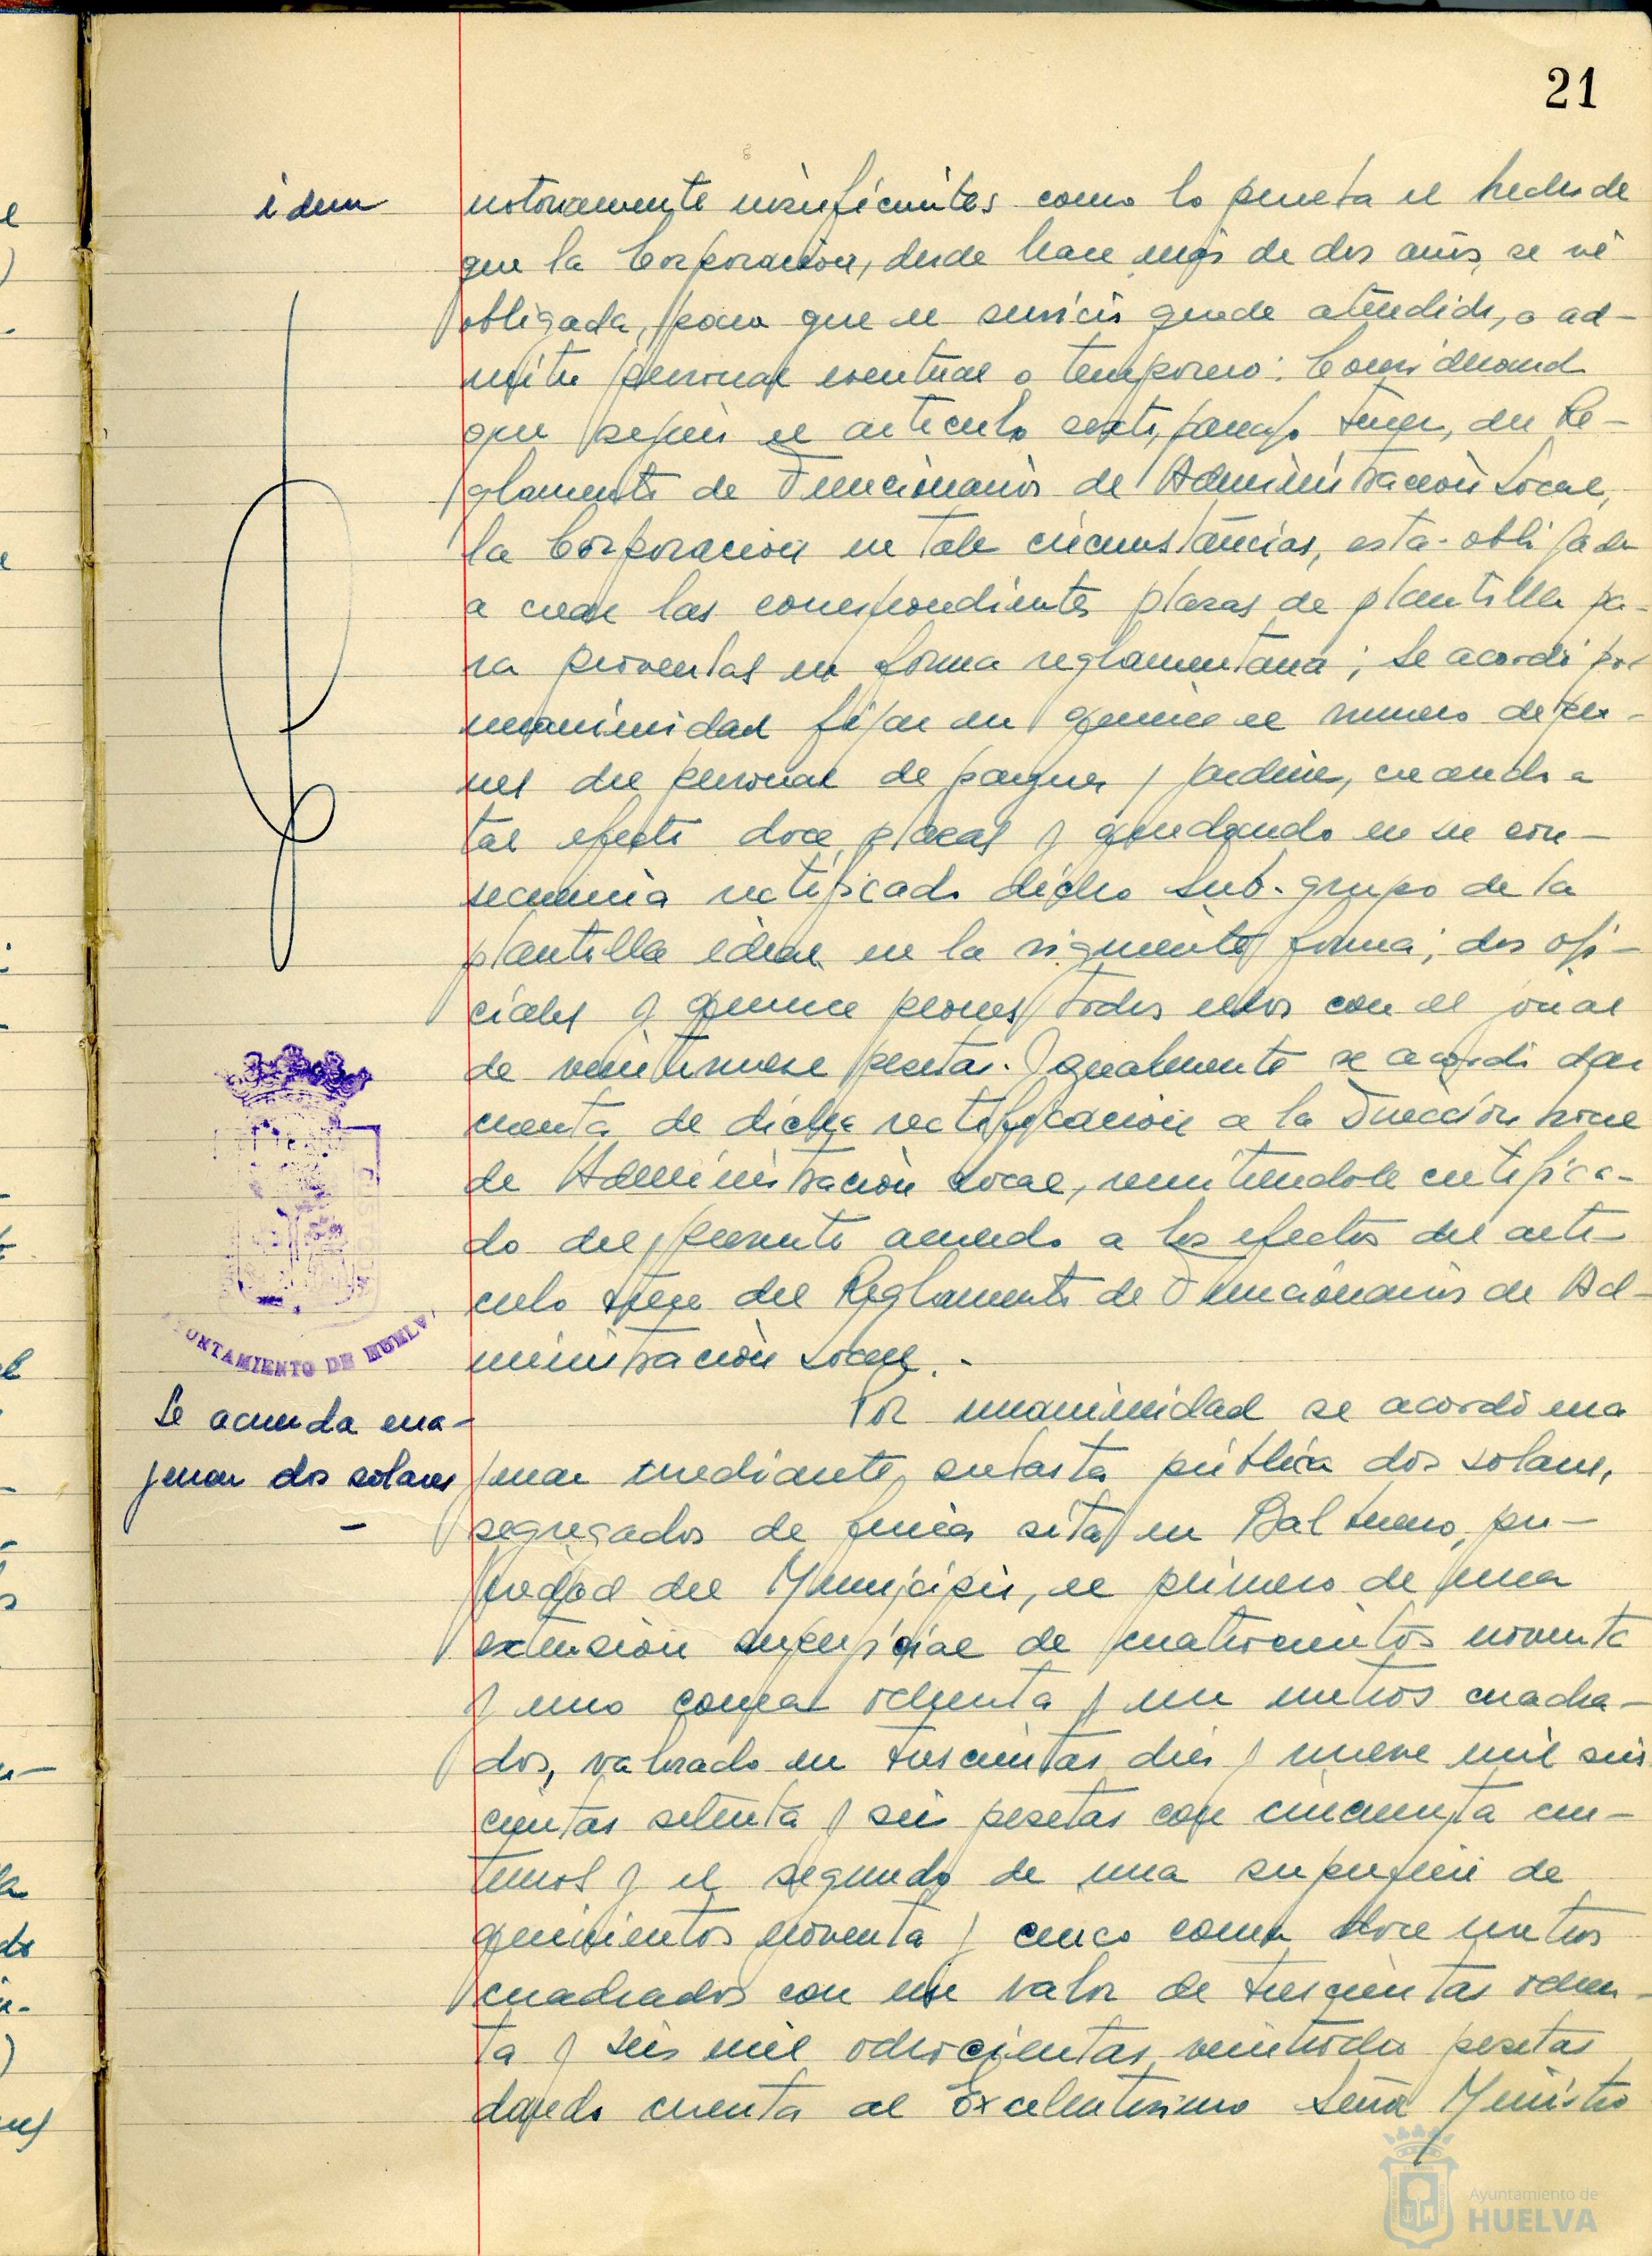 21
idem
notoriamente insuficientes como lo prueba el hecho de
que la Corporación, desde hace más de dos años, se vé
obligada, para que el servicio quede atendido, a ad-
mitir personal eventual o temporero: Considerand
que según el articulo sexto, parrafo tercero, del Re-
glamento de Funcionarios de Administración Local,
la Corporacion en tales circunstancias, esta obligada
a crear las correspondientes plazas de plantilla pa-
ra proveerlas en forma reglamentaria; Se acordó por
unanimidad fijar en quince el numero de peo-
nes del personal de parques y jardines, creando a
tal efecto doce plazas y quedando en su con-
secuencia rectificado dicho sub-grupo de la
plantilla ideal en la siguiente forma; dos ofi-
ciales y quince peones todos ellos con el jornal
de veintinueve pesetas. Igualmente se acordó dar
cuenta de dicha rectificación a la Dirección Gral
de Administración Local, remitiendole certifica-
do del presente acuerdo a los efectos del arti-
culo trece del Reglamento de Funcionarios de Ad-
ministración Local.-
AYUNTAMIENTO DE HUELVA
Se acuerda ena-
jenar dos solares
-
Por unanimidad se acordó ena
jenar mediante subasta pública dos solares,
segregados de finca sita en Balbueno, pro-
piedad del Municipio, el primero de una
extensión superficial de cuatrocientos noventa
y uno coma ochenta y un metros cuadra-
dos, valorado en trescientas diez y nueve mil seis
cientas setenta y seis pesetas con cincuenta cen-
timos y el segundo de una superficie de
quinientos noventa y cinco coma doce metros
cuadrados con un valor de trescientas ochen-
ta y seis mil ochocientas veintiocho pesetas
dando cuenta al Excelentisimo Señor Ministro
Ayuntamiento de
HUELVA